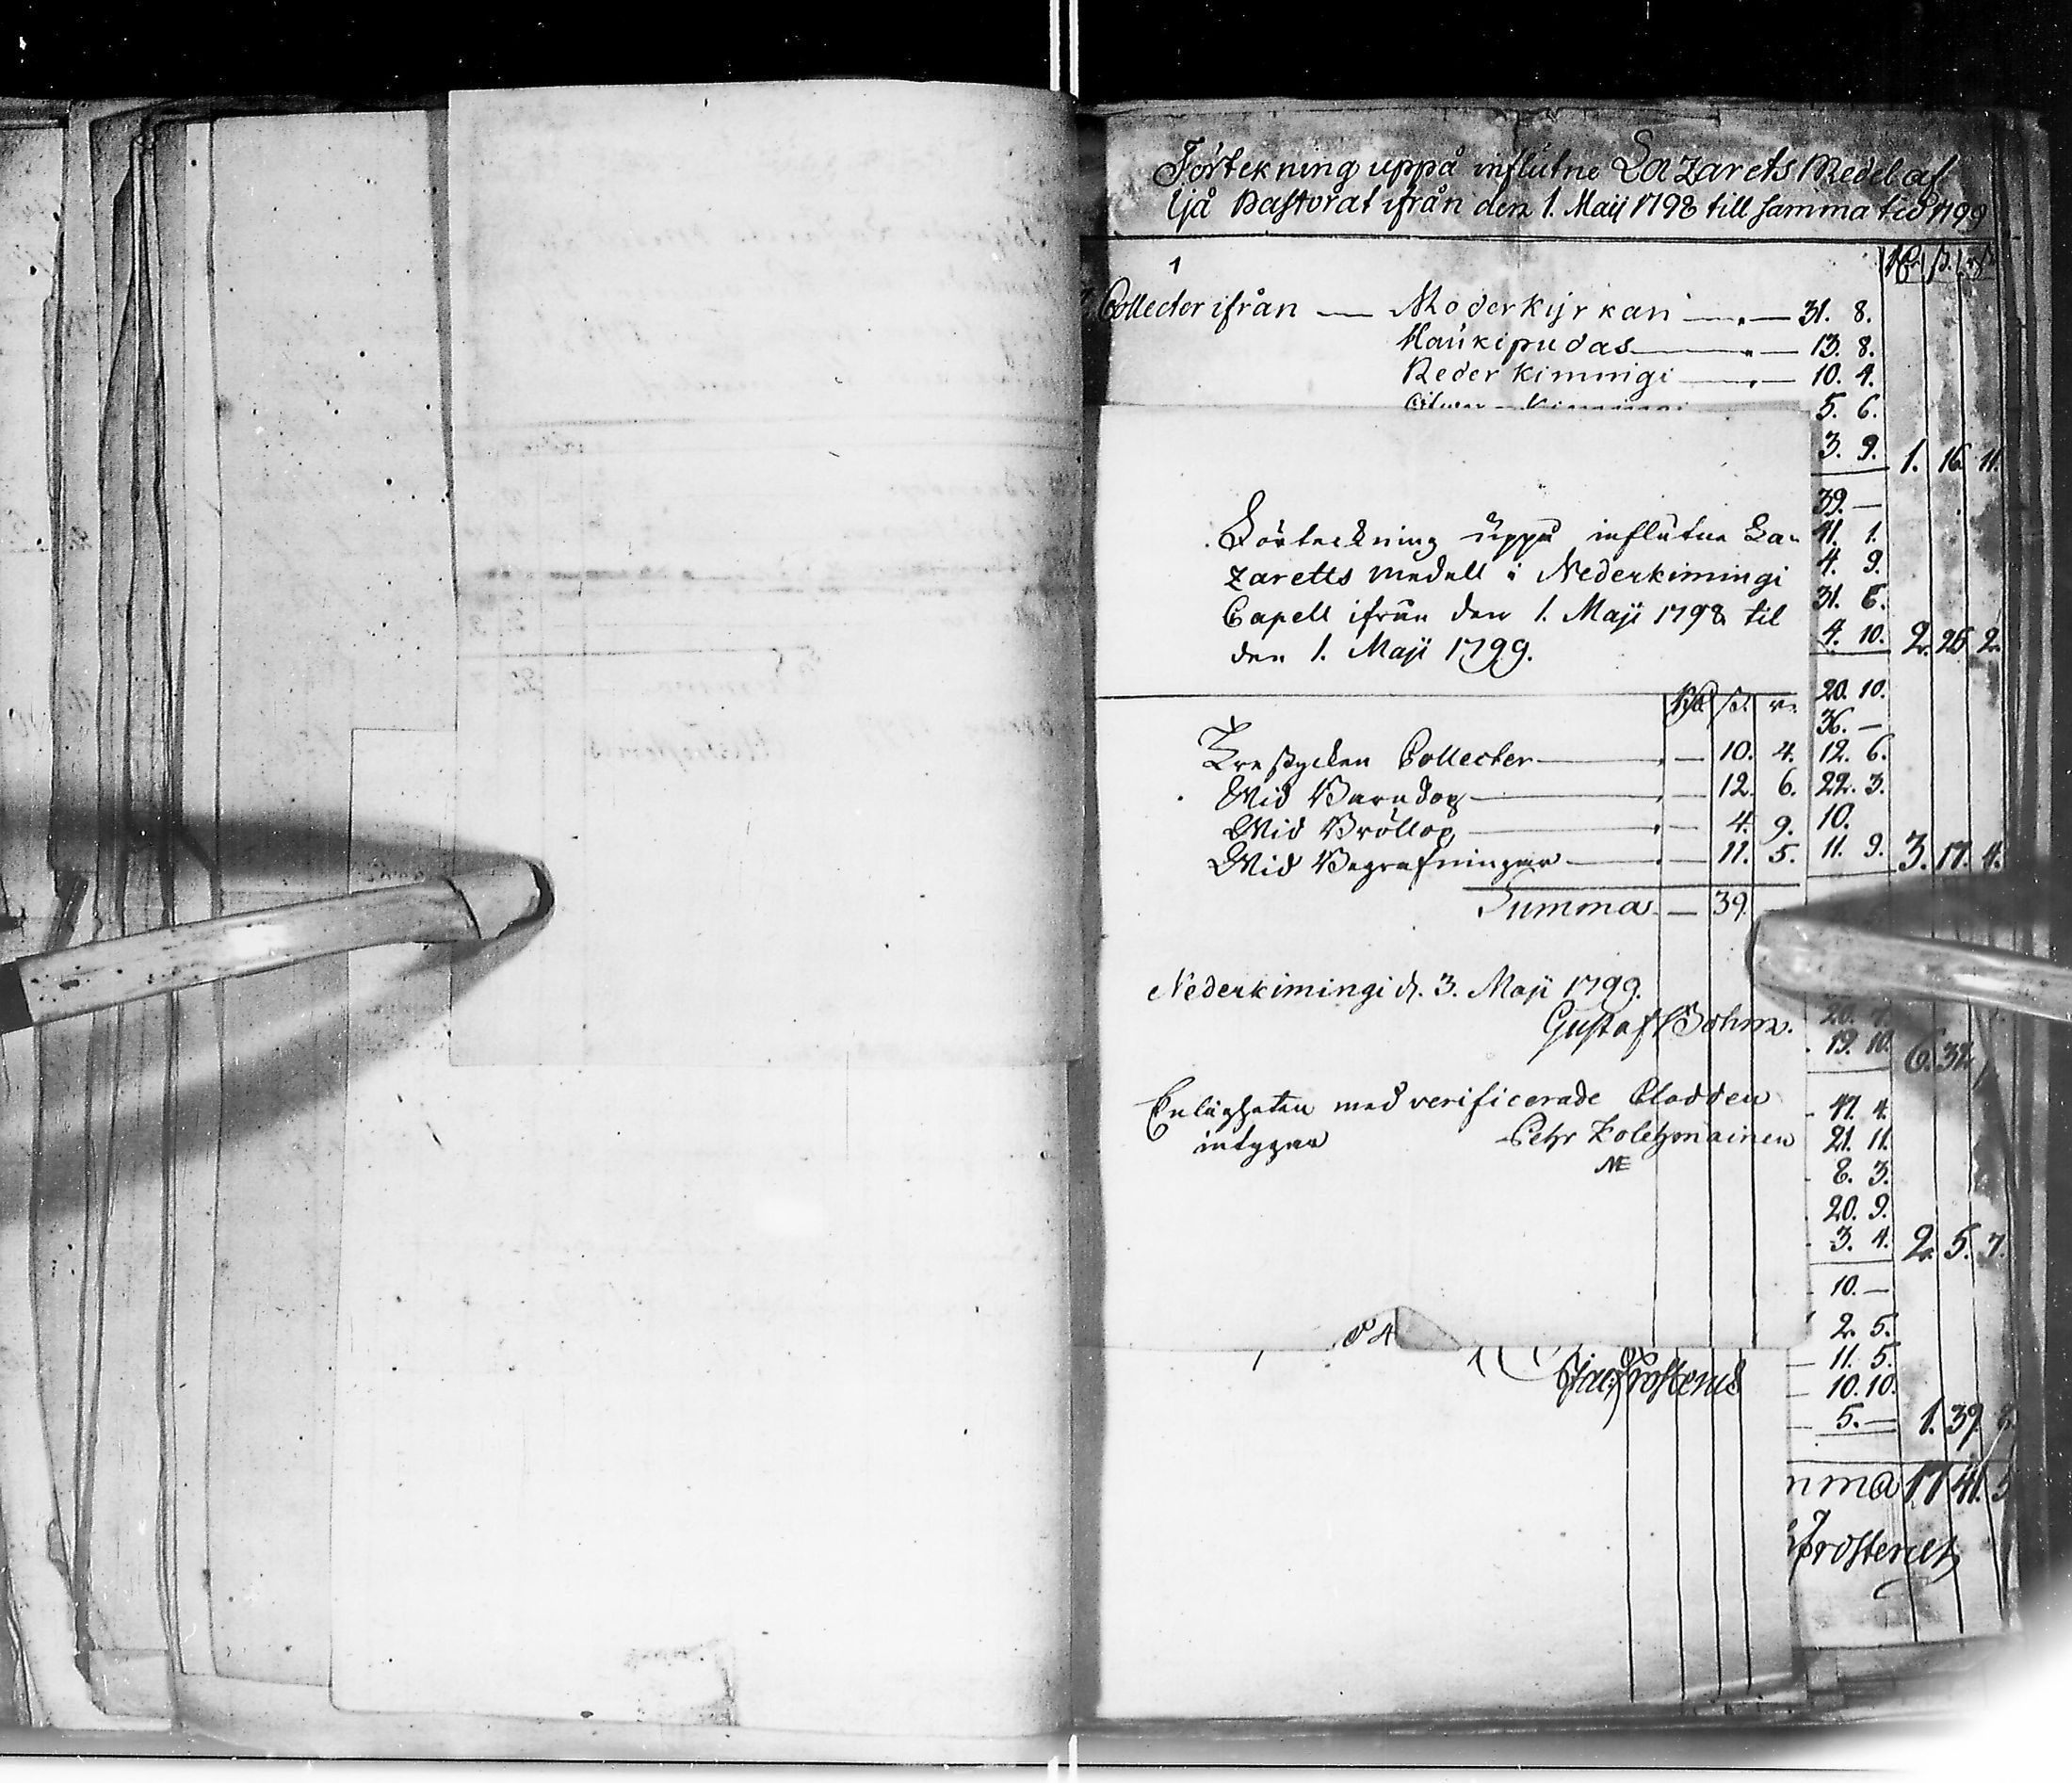 Förtekning uppå influtne Lazarets Medel af
Ijå Pastorat ifrån den 1. Maij 1798 till samma tid 1799
1
Collecter ifrån — Moderkyrkan — 31. 8.
Haukipudas — 13. 8.
Neder Kimingi — 10. 4.
5. 6.
3. 9. 1. 16. 11.
39. —
41. 1.
4. 9.
31. 6.
4. 10. 2. 25. 2.
20. 10.
36. —
12. 6.
22. 3.
10.
11. 9. 3. 17. 4.
19. 10. 6. 32
47. 4.
21. 11.
8. 3.
20. 9.
3. 4. 2. 5. 7.
10. —
2. 5.
11. 5.
10. 10.
5. — 1. 39
mma 17 41. 5
Frosterus
Förteckning uppå influtne La-
zaretts medell i Nederkimingi
Capell ifrån den 1. Maji 1798 til
den 1. Maji 1799.
Rd s. r.
Tre stycken Collecter — 10. 4.
Wid Barndop — 12. 6.
Wid Bröllop — 4. 9.
Wid Begrafningar — 11. 5.
Summa — 39.
Nederkimingi d. 3. Maji 1799.
Gustaf Bohm.
Enligheten med verificerade Cladden
intygar Pehr Kolehmainen
Jac: Frosterus